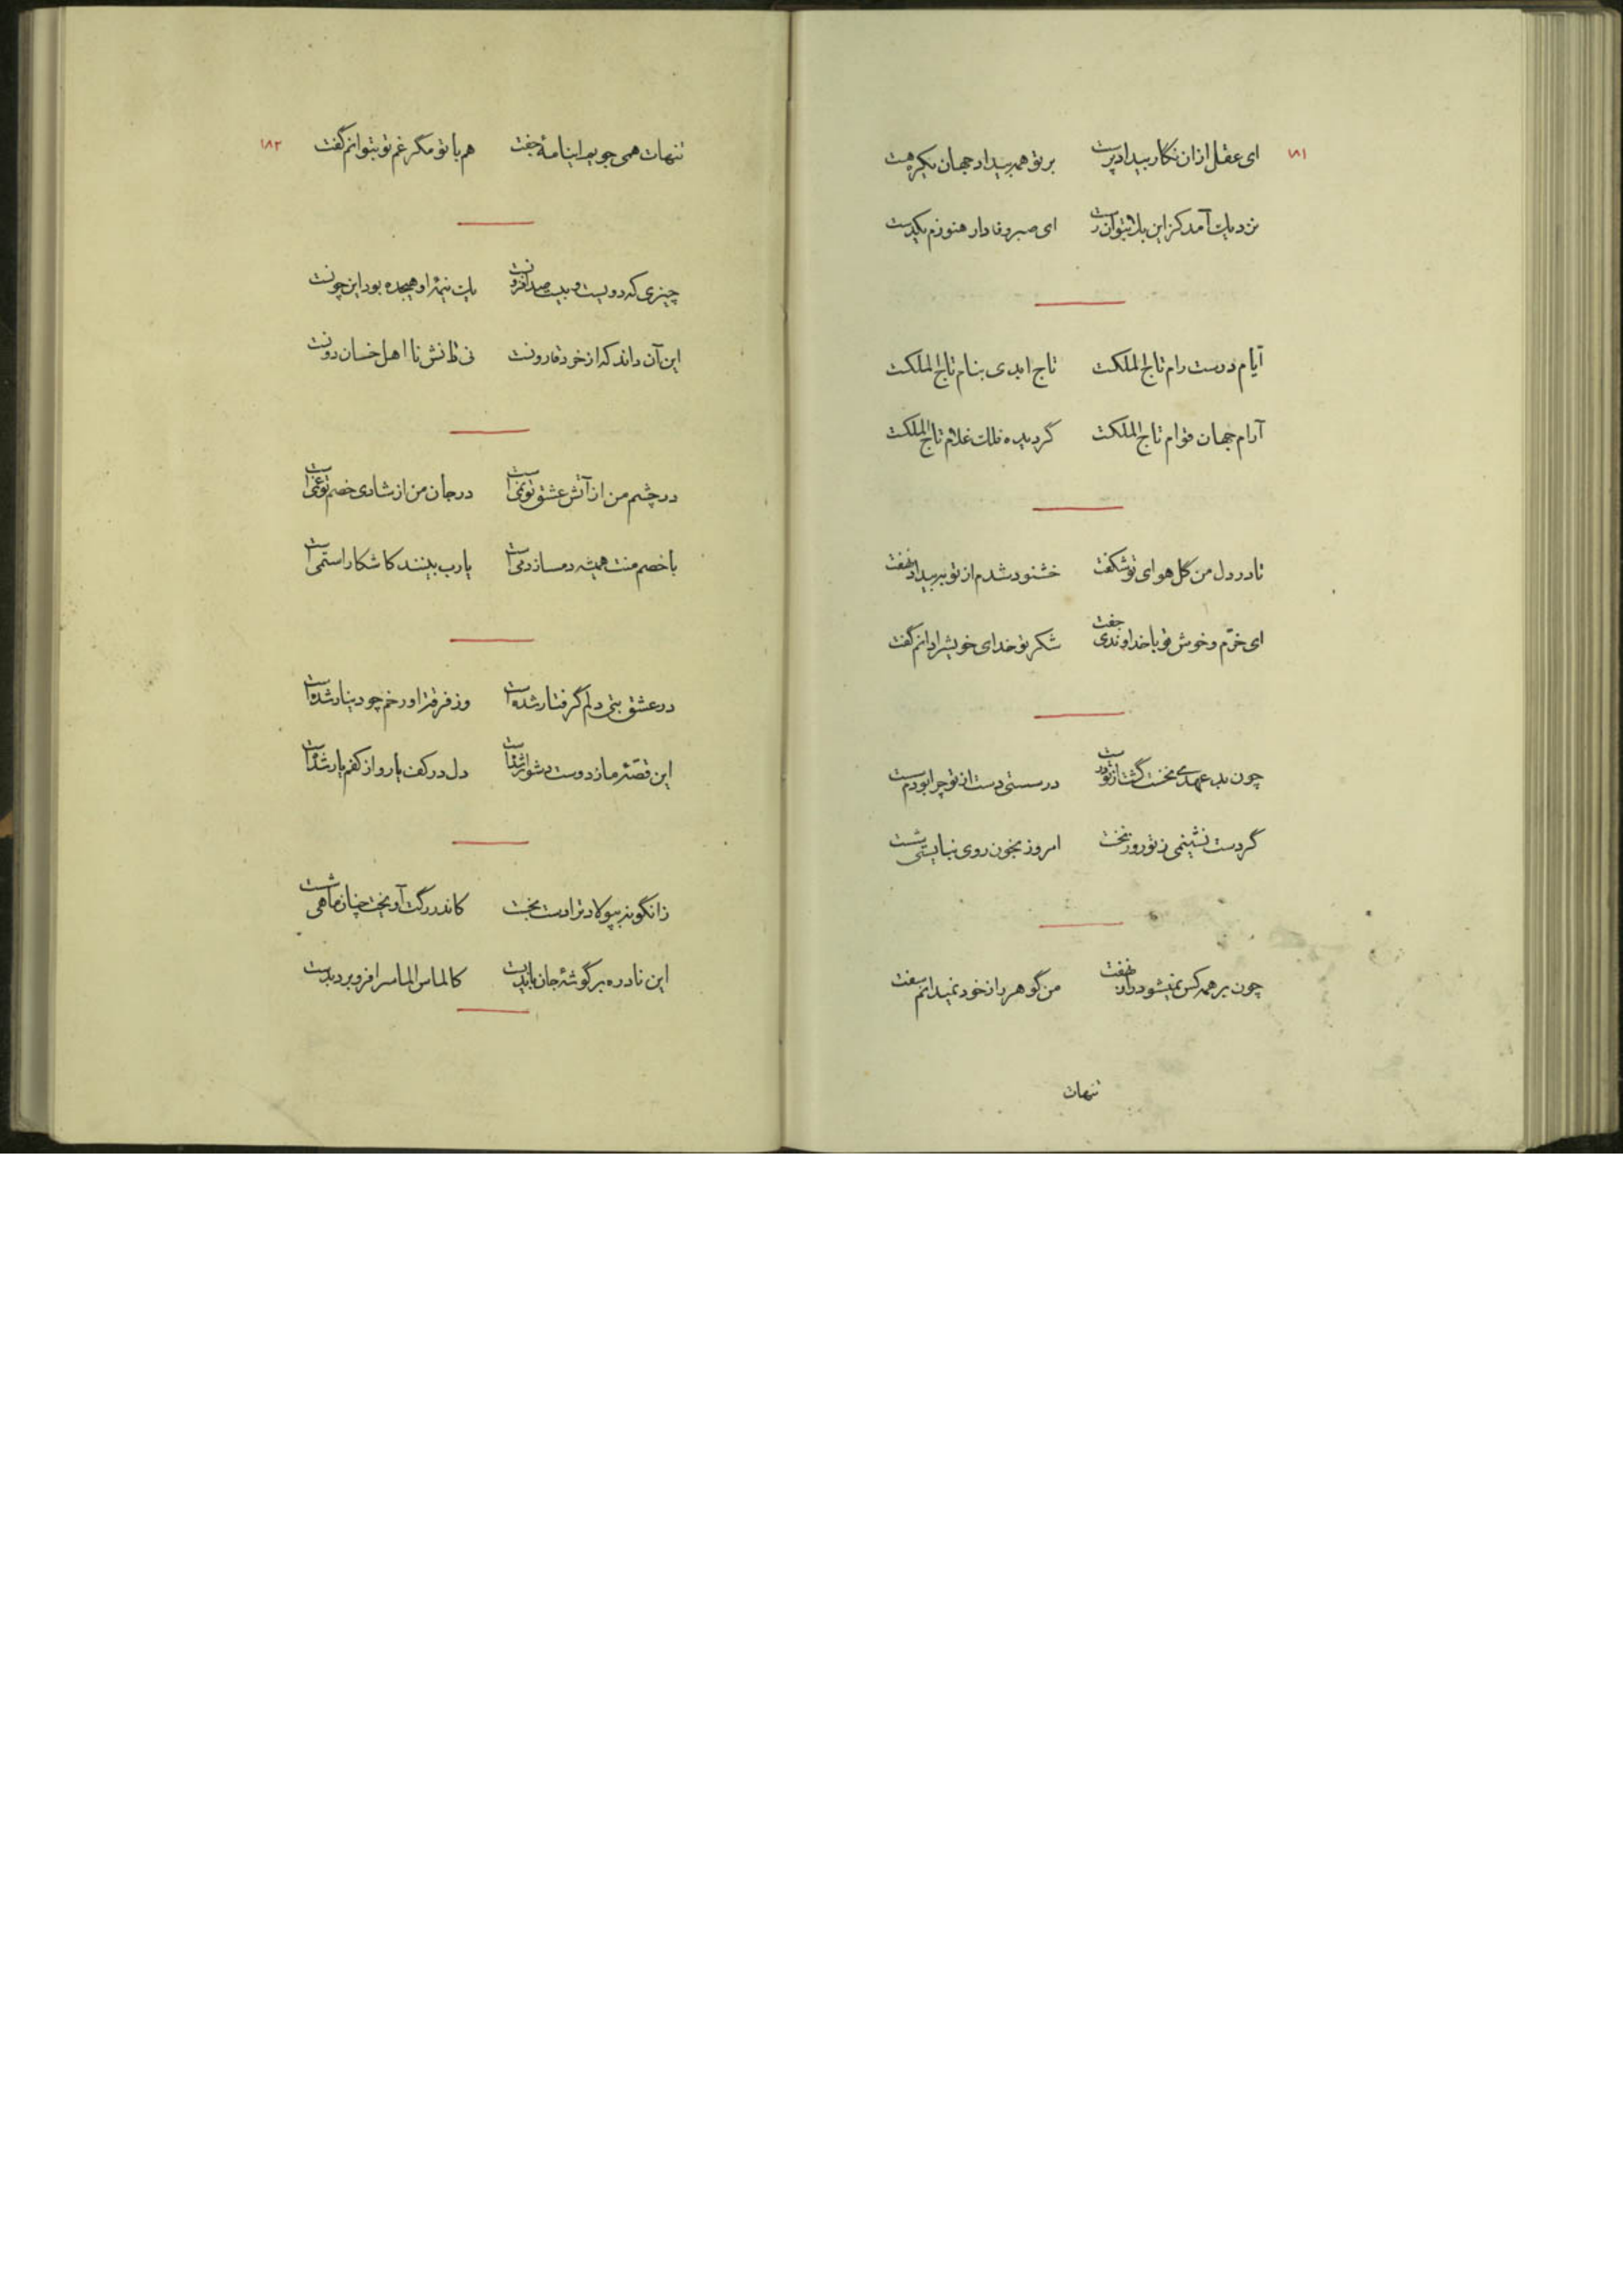 ۱۸۱
ای عقل ازان نگار بیداد پرست بر تو همه بیداد جهان یکسره هست
نزدیک آمد کز این بلا نتوان رست ای صبر وفادار هنوزم یکدست
ایام درست رام تاج الملکت تاج ابدی بنام تاج الملکت
آرام جهان قوام تاج الملکت گردیده فلک غلام تاج الملکت
تا در دل من گل هوای تو شکفت خشنود شدم از تو ببیداد نهفت
ای خرّم و خوش تو با خداوندی جفت شکر تو خدای خویش را دانم گفت
چون بد عهدی نخست گشت از تو درست در سستی دست از تو چرا بودم سست
گر دست نشینمی ز تو روز نخست امروز بخون روی نبایستی شست
چون بر همه کس نمیشود راز نهفت من گوهر راز خود نمیدانم سفت
تنهات
۱۸۲
تنهات همی جویم اینامهٔ جفت هم با تو مگر غم تو بتوانم گفت
چیزی که دویست و بیست صد افزونت یک نیمهٔ او هیجده بود این چونت
این آن داند که از خرد قارونت نی دانش نا اهل خسان دونت
در چشم من از آتش عشق تو نمی است در جان من از شادی خصم تو غمی است
با خصم منت همیشه دمسازدمی است یارب بینند کاشکارا ستمی است
در عشق بتی دلم گرفتار شده است وز فرقت او رخم چو دینار شده است
این قصّهٔ ما ز دوست دشوار شده است دل در کف یار و از کفم یار شده است
زانگونه بپولاد ترا دست بخت کاندر رگت آویخت چنان ماهی شست
این نادره بر گوشهٔ جان باید بست کالماس الماس را فرو برد بدست